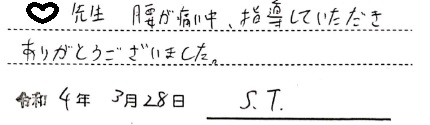 ♡先生 腰が痛い中、指導していただき
ありがとうございました。
令和 4年 3月28日 S.T.